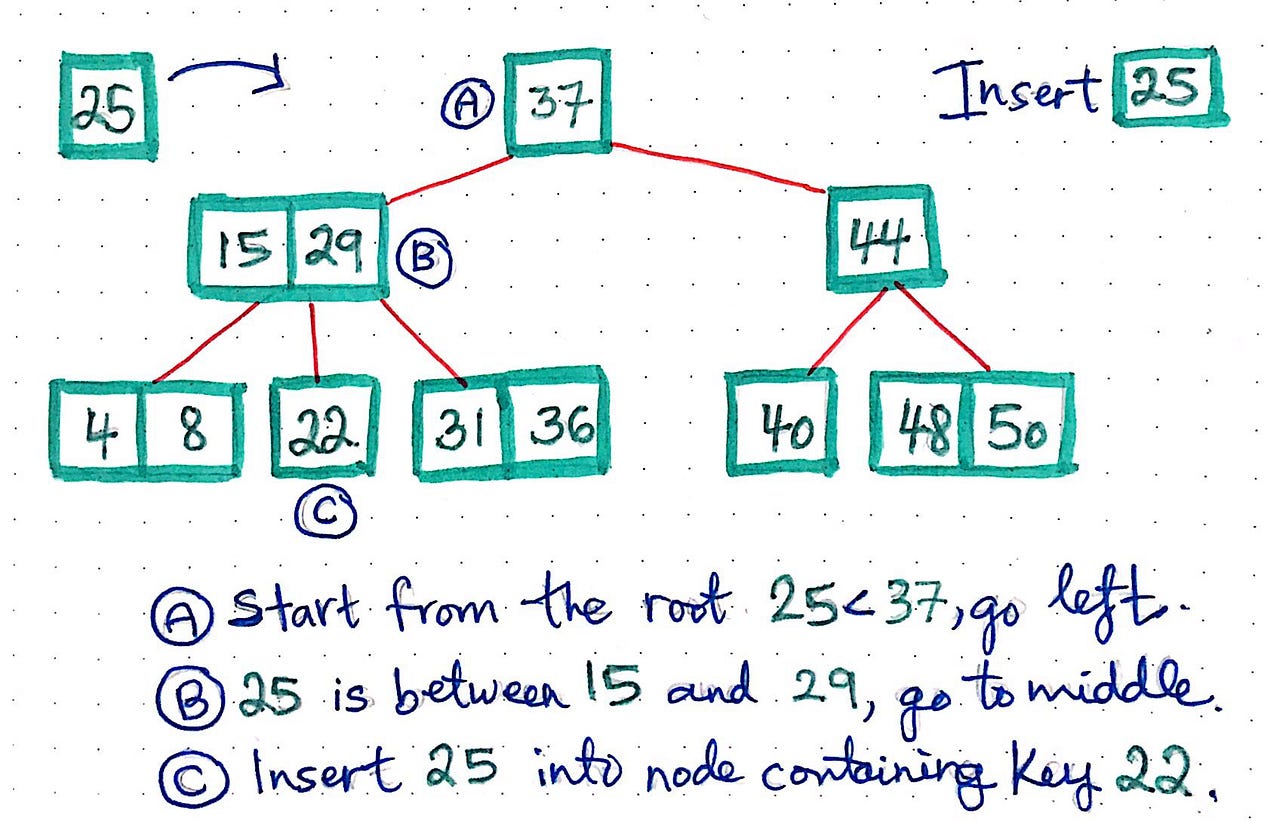 25 Ⓐ 37 Insert 25
15 29 Ⓑ 44
4 8 22 31 36 40 48 50
Ⓒ
Ⓐ Start from the root 25<37, go left.
Ⓑ 25 is between 15 and 29, go to middle.
Ⓒ Insert 25 into node containing Key 22.